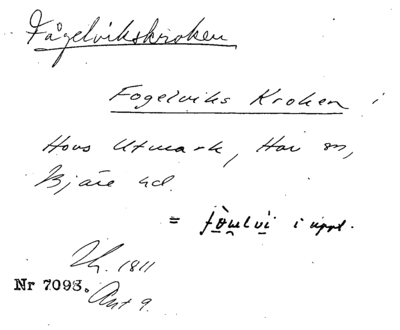 Fågelvikskroken
Fogelviks Kroken i
Hovs Utmark, Hov sn,
Bjäre hd.
= i uppt.
1811
Nr 7093. Akt 9.